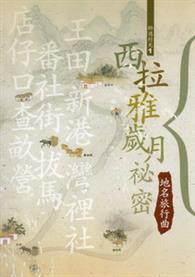 西拉雅歲月祕密
地名旅行曲
王田新港灣裡社
番社街拔馬
店仔口查畝營